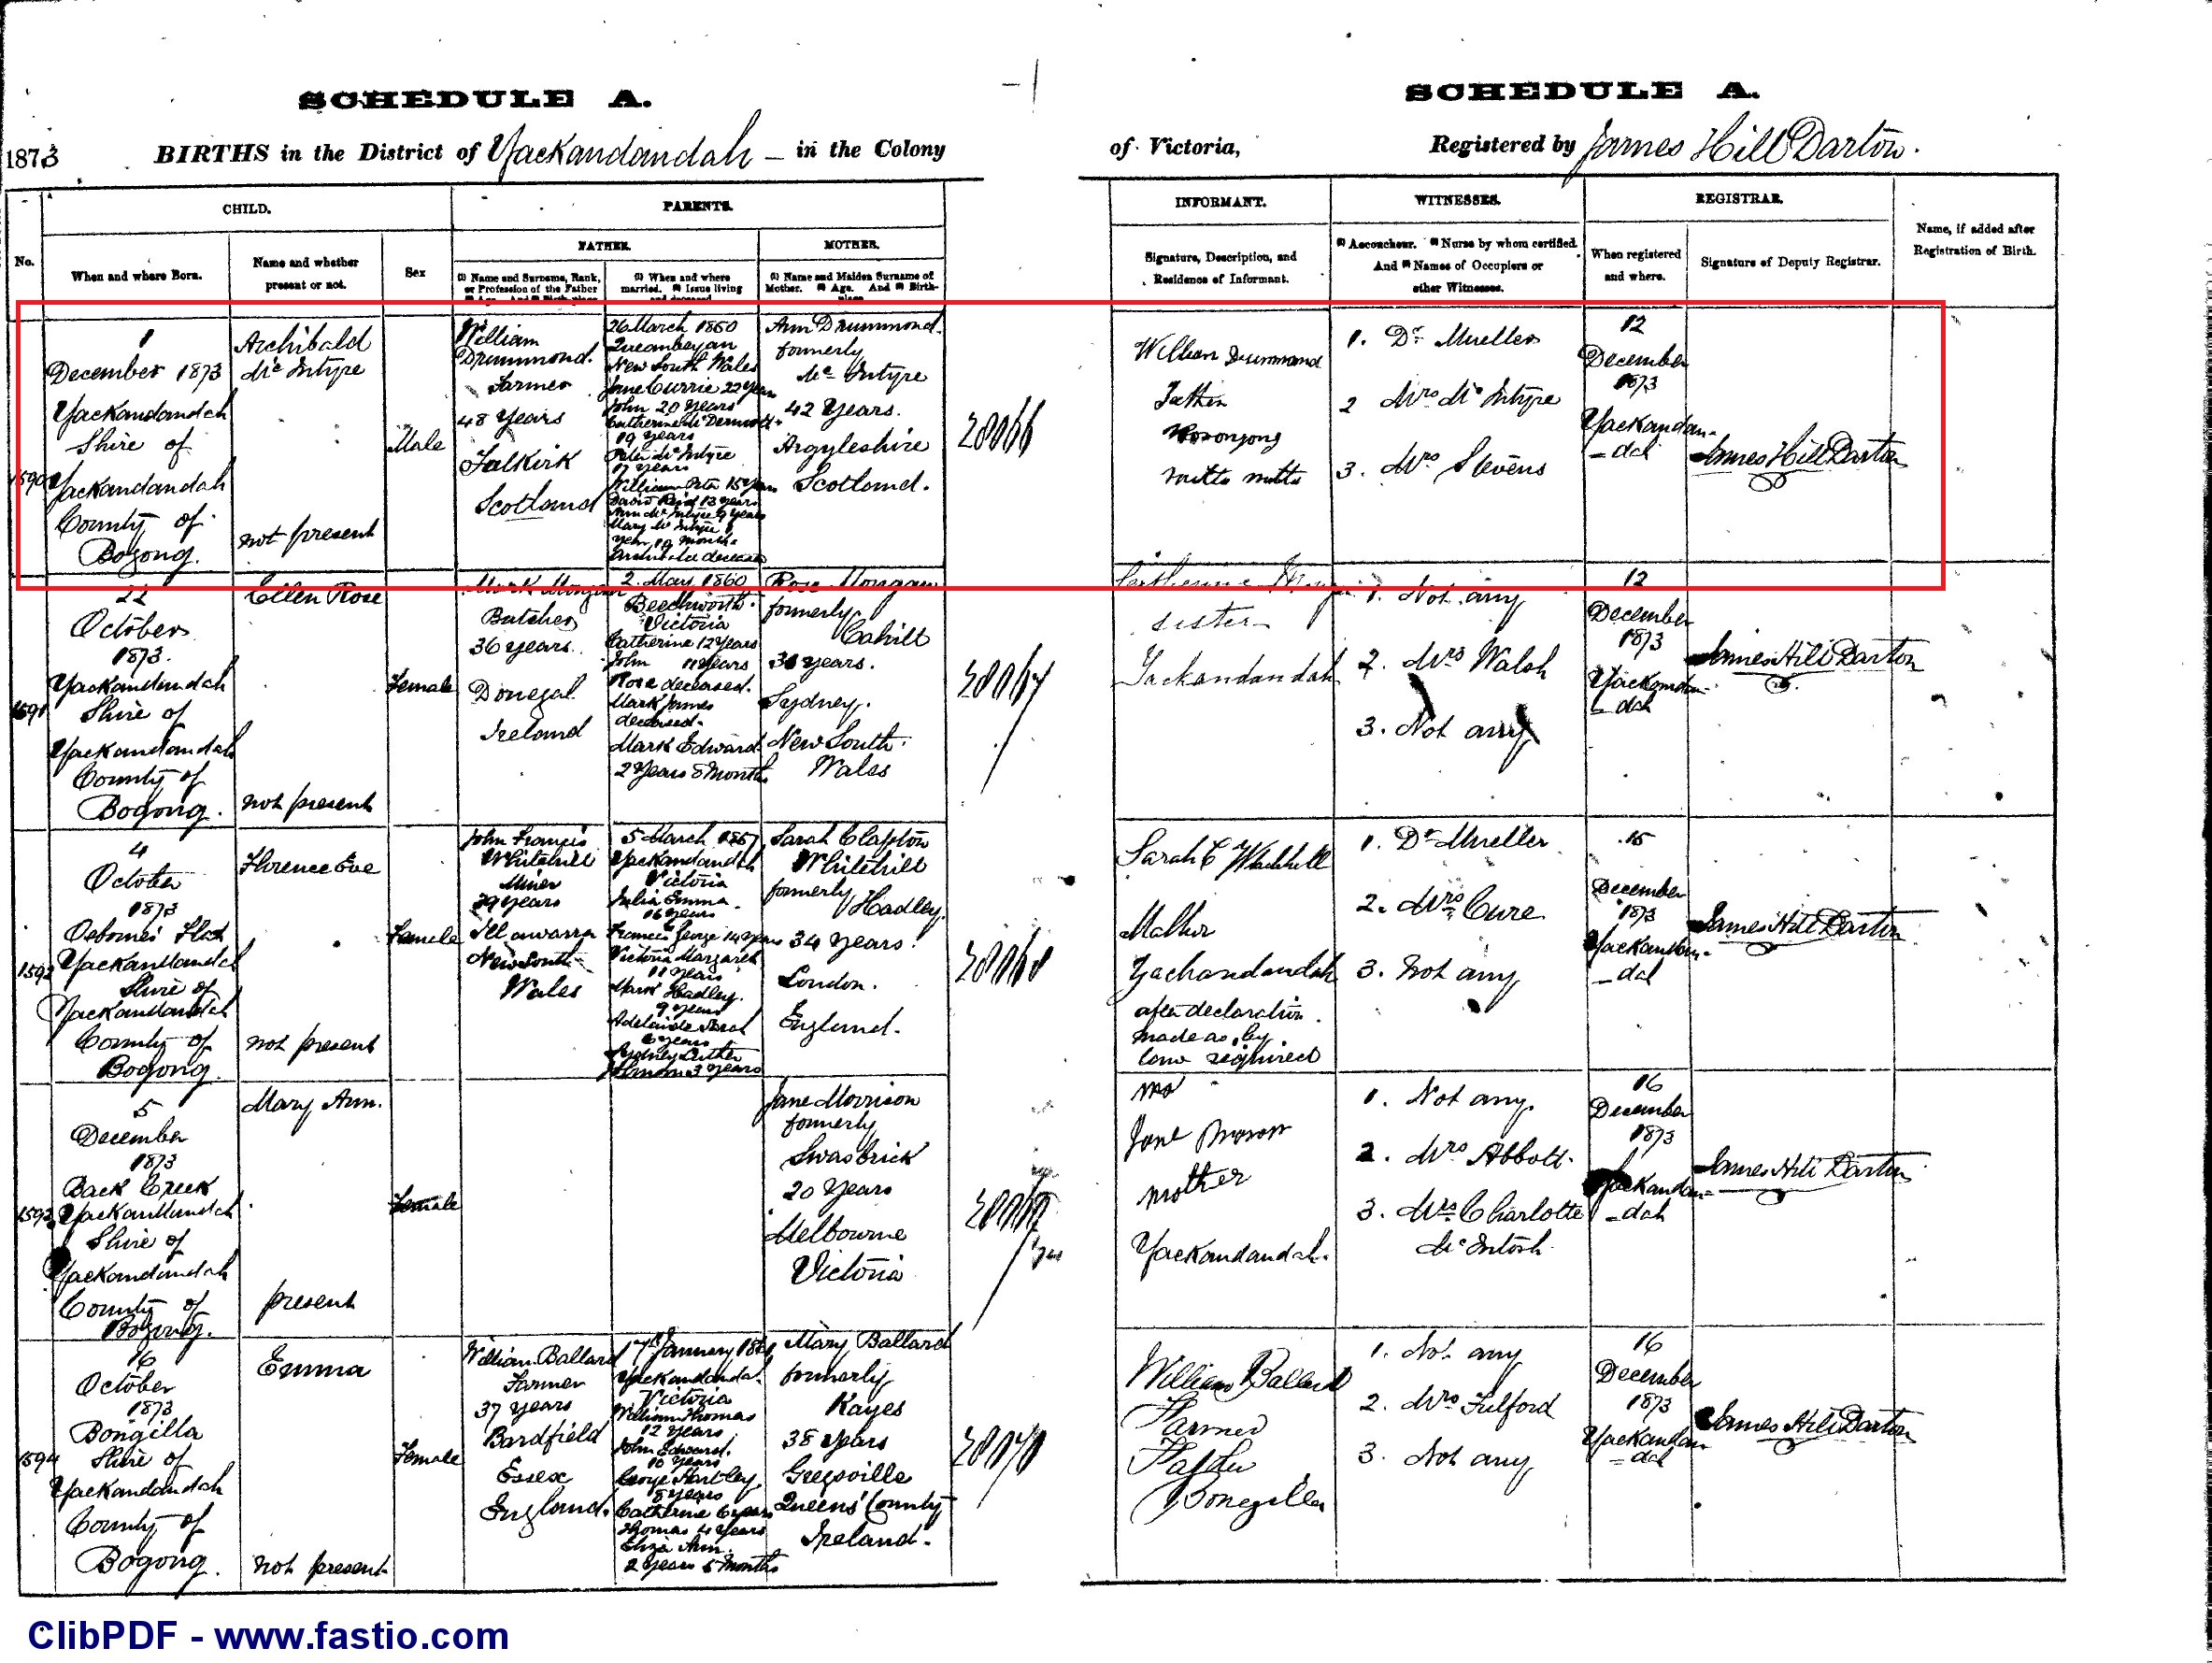 SCHEDULE A.
SCHEDULE A.
1873 BIRTHS in the District of Yackandandah — in the Colony
of Victoria, Registered by James Hill Darton.
CHILD. PARENTS.
INFORMANT. WITNESSES. REGISTRAR.
FATHER. MOTHER.
No.
When and where Born.
Name and whether
present or not.
Sex
(1) Name and Surname, Rank,
or Profession of the Father
(1) When and where
married. (2) Issue living
and deceased
(1) Name and Maiden Surname of
Mother. (2) Age. And (3) Birth-
place
Signature, Description, and
Residence of Informant.
(1) Accoucheur. (2) Nurse by whom certified.
And (3) Names of Occupiers or
other Witnesses.
When registered
and where.
Signature of Deputy Registrar.
Name, if added after
Registration of Birth.
1590
1
December 1873
Yackandandah
Shire of
Yackandandah
County of
Bogong.
Archibald
McIntyre
not present
Male
William
Drummond.
Farmer
48 Years
Falkirk
Scotland
26 March 1850
Queanbeyan
New South Wales
Jane Currie 22 Years
John 20 Years
Catherine McDermott
19 years
Peter McIntyre
17 years
William Peter 15 Years
David Reid 13 years
Ann McIntyre 9 years
Mary McIntyre 1
year, 10 months
Archibald deceased
Ann Drummond.
formerly
McIntyre
42 Years.
Argyleshire
Scotland.
28066
William Drummond
Father
Mitta Mitta
1. Dr Mueller
2 Mrs McIntyre
3. Mrs Stevens
12
December
1873
Yackandan-
-dah
James Hill Darton
1591
22
October
1873.
Yackandandah
Shire of
Yackandandah
County of
Bogong.
Ellen Rose
not present
Female
Mark Morgan
Butcher
36 years.
Donegal
Ireland
2. May 1860
Beechworth.
Victoria
Catherine 12 Years
John 11 Years
Rose deceased.
Mark James
deceased.
Mark Edward
2 Years 8 Months
Rose Morgan
formerly
Cahill
years.
Sydney.
New South
Wales
28067
Catherine
sister
Yackandandah
1. Not any
2. Mrs Walsh
3. Not any
12
December
1873
Yackandan-
-dah
James Hill Darton
1592
4
October
1873
Osbornes' Flat
Yackandandah
Shire of
Yackandandah
County of
Bogong.
Florence Eve
not present
Female
John Francis
Whitehill
Miner
39 years
Illawarra
New South
Wales
5 March 1857
Yackandandah
Victoria
Julia Emma.
16 years
Francis George 14 Years
Victoria Margaret
11 Years
Mark Hadley.
9 years
Adelaide Sarah
6 years
Sydney Luther
3 years
Sarah Clapton
Whitehill
formerly
Hadley
34 years.
London.
England.
28068
Sarah C Whitehill
Mother
Yackandandah
after declaration
made as by
law required
1. Dr Mueller
2. Mrs Cure
3. Not any
15
December
1873
Yackandan-
-dah
James Hill Darton
1593
5
December
1873
Back Creek
Yackandandah
Shire of
Yackandandah
County of
Bogong.
Mary Ann.
present
Female
Jane Morrison
formerly
Swasbrick
20 Years
Melbourne
Victoria
28069
Jane
mother
Yackandandah.
1. Not any.
2. Mrs Abbott.
3. Mrs Charlotte
McIntosh.
16
December
1873
Yackandan-
-dah
James Hill Darton
1594
16
October
1873
Bongilla
Shire of
Yackandandah
County of
Bogong.
Emma
not present
Female
William Ballard
Farmer
37 years
Bardfield
Essex
England.
17th January
Yackandandah.
Victoria
William Thomas
12 years
John Edward.
10 years
George Hartley
8 years
Catherine 6 years
Thomas 4 Years
Eliza Ann.
2 years 5 months
Mary Ballard
formerly
Kayes
38 years
Gregsville
Queens' County
Ireland.
28070
William Ballard
Farmer
Father
Bonegilla
1. Not any
2. Mrs Fulford
3. Not any
16
December
1873
Yackandan
-dah
James Hill Darton
ClibPDF - www.fastio.com